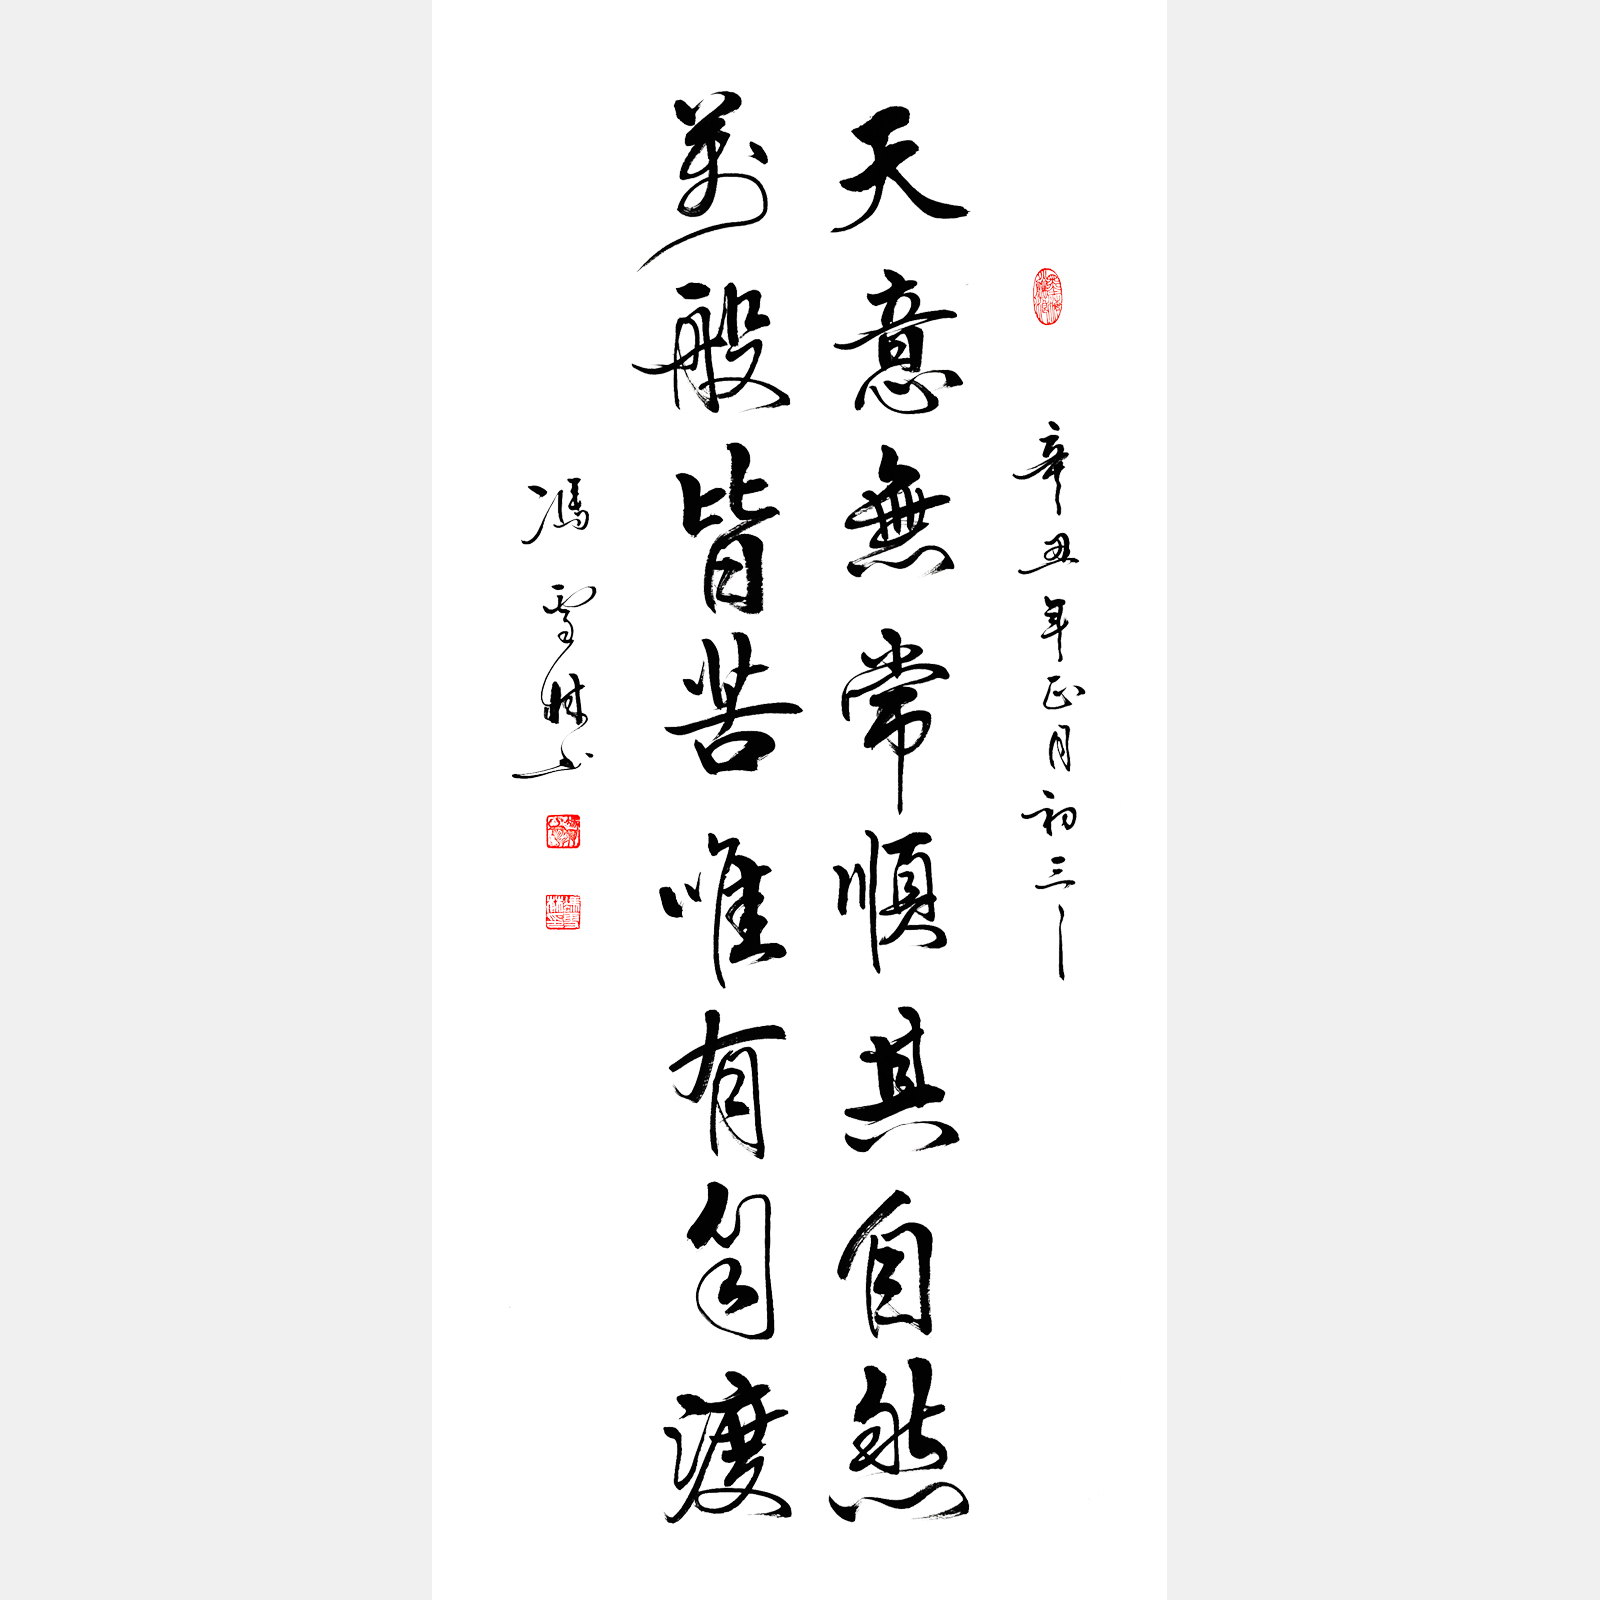 辛丑年正月初三
天意無常順其自然
萬般皆苦唯有自渡
馮雪林书